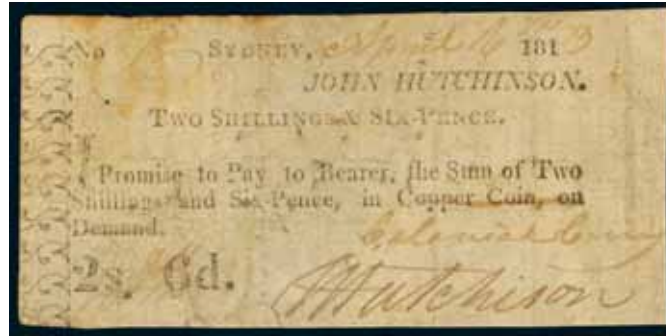 No SYDNEY, April 6 1813
JOHN HUTCHINSON.
TWO SHILLINGS & SIX-PENCE.
Promise to Pay to Bearer, the Sum of Two
Shillings and Six-Pence, in Copper Coin, on
Demand.
Colonial Curry
2s. 6d.
JHutchison